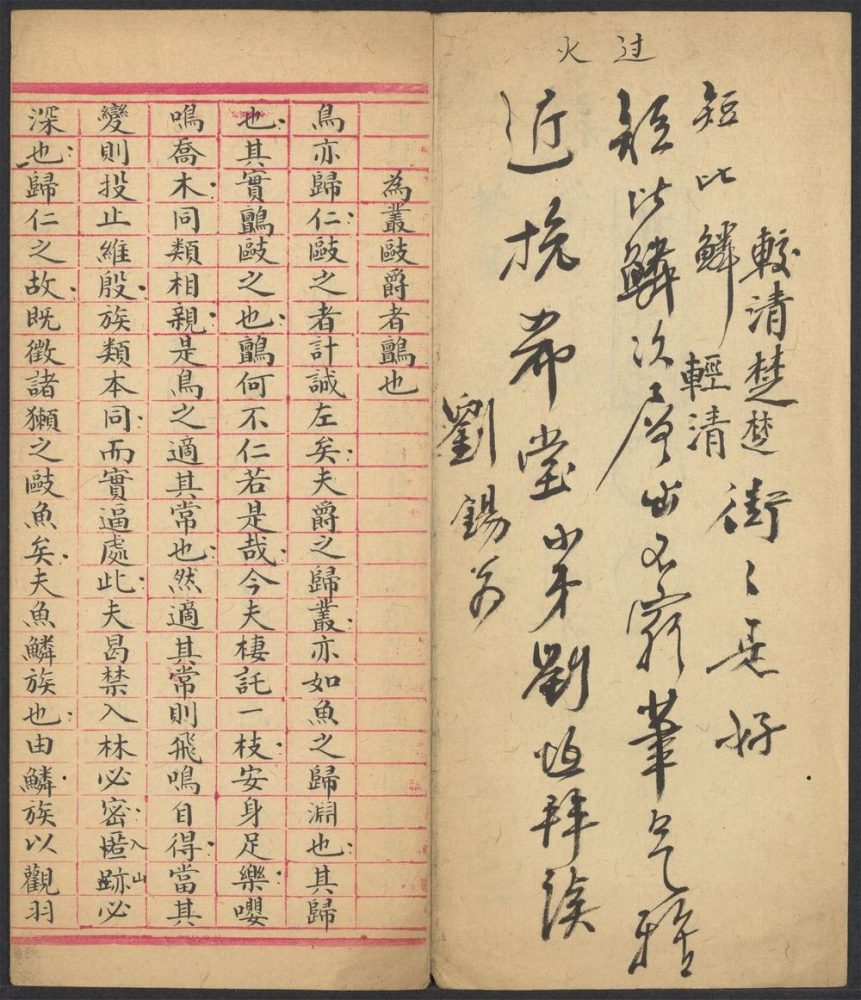 过火
短比鱗
較清楚楚
輕清
街〻是好
短比鱗次層出不窮筆气
近挽
堂小弟劉
拜讀
劉錫
為叢敺爵者鸇也
鳥亦歸仁敺之者計誠左矣夫爵之歸叢亦如魚之歸淵也其歸
也其實鸇敺之也鸇何不仁若是哉今夫棲託一枝安身足樂嚶
鳴喬木同類相親是鳥之適其常也然適其常則飛鳴自得當其
變則投止維殷族類本同而實逼處此夫曷禁入林必密匿跡必
入山
深也歸仁之故既徵諸獺之敺魚矣夫魚鱗族也由鱗族以觀羽